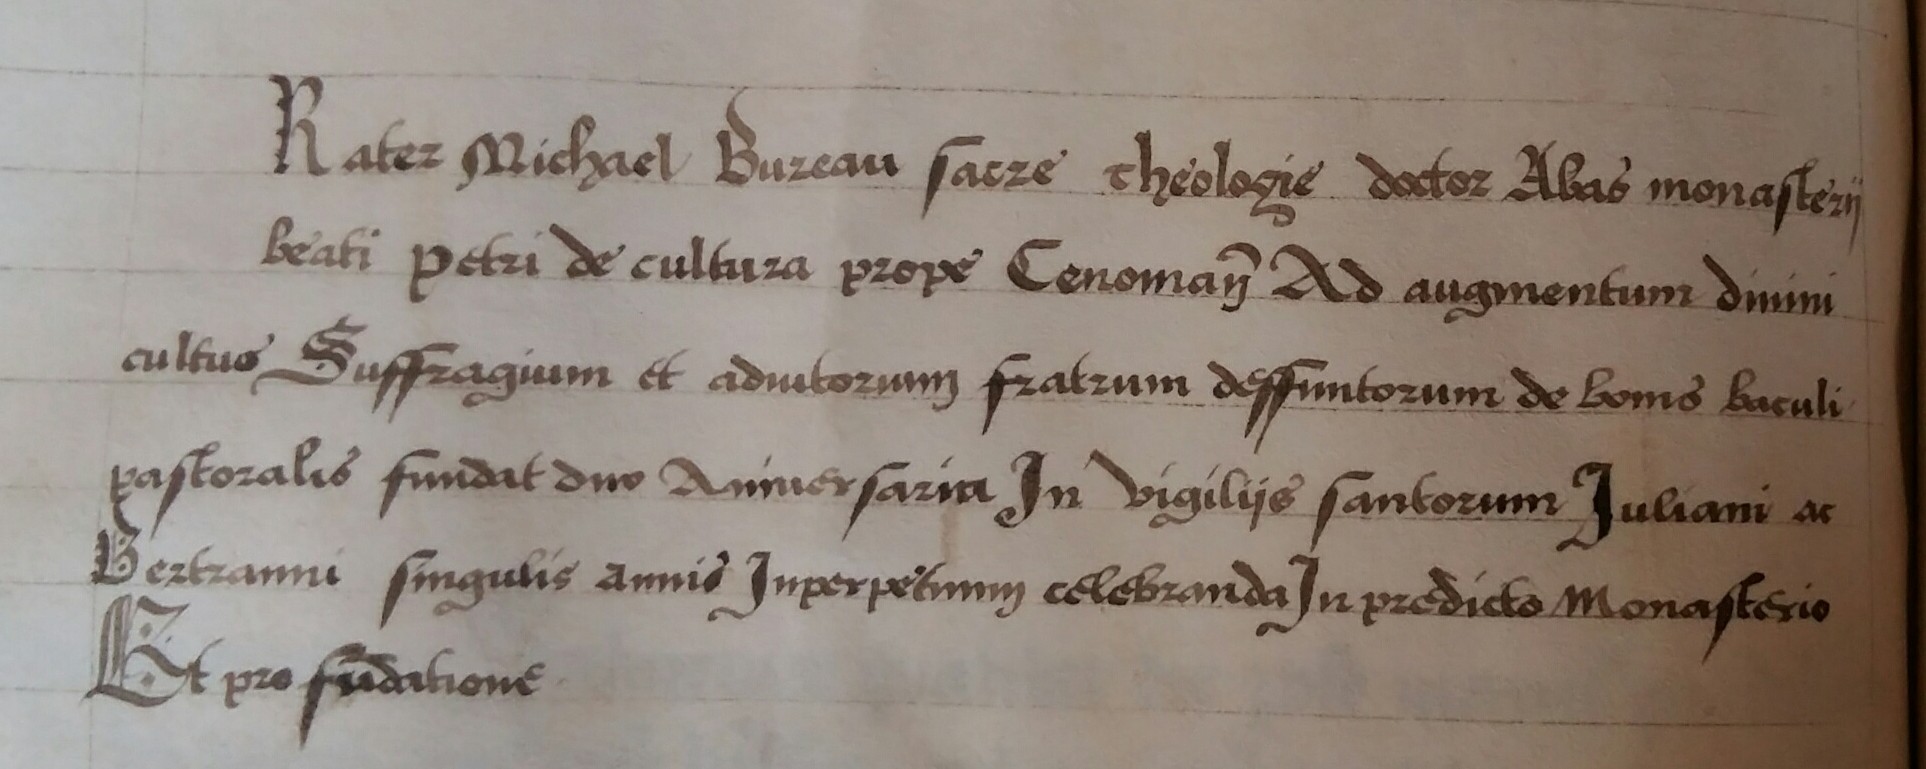 Rater Michael Bureau sacre theologie doctor Abas monasterij
beati petri de cultura prope Cenomañ Ad augmentum diuini
cultus Suffragium et adiutorium fratrum deffuntorum de bonis baculi
pastoralis fundat duo Aniuersaria In vigilijs santorum Juliani ac
Bertranni singulis annis Inperpetuum celebranda In predicto Monasterio
Et pro fūdatione